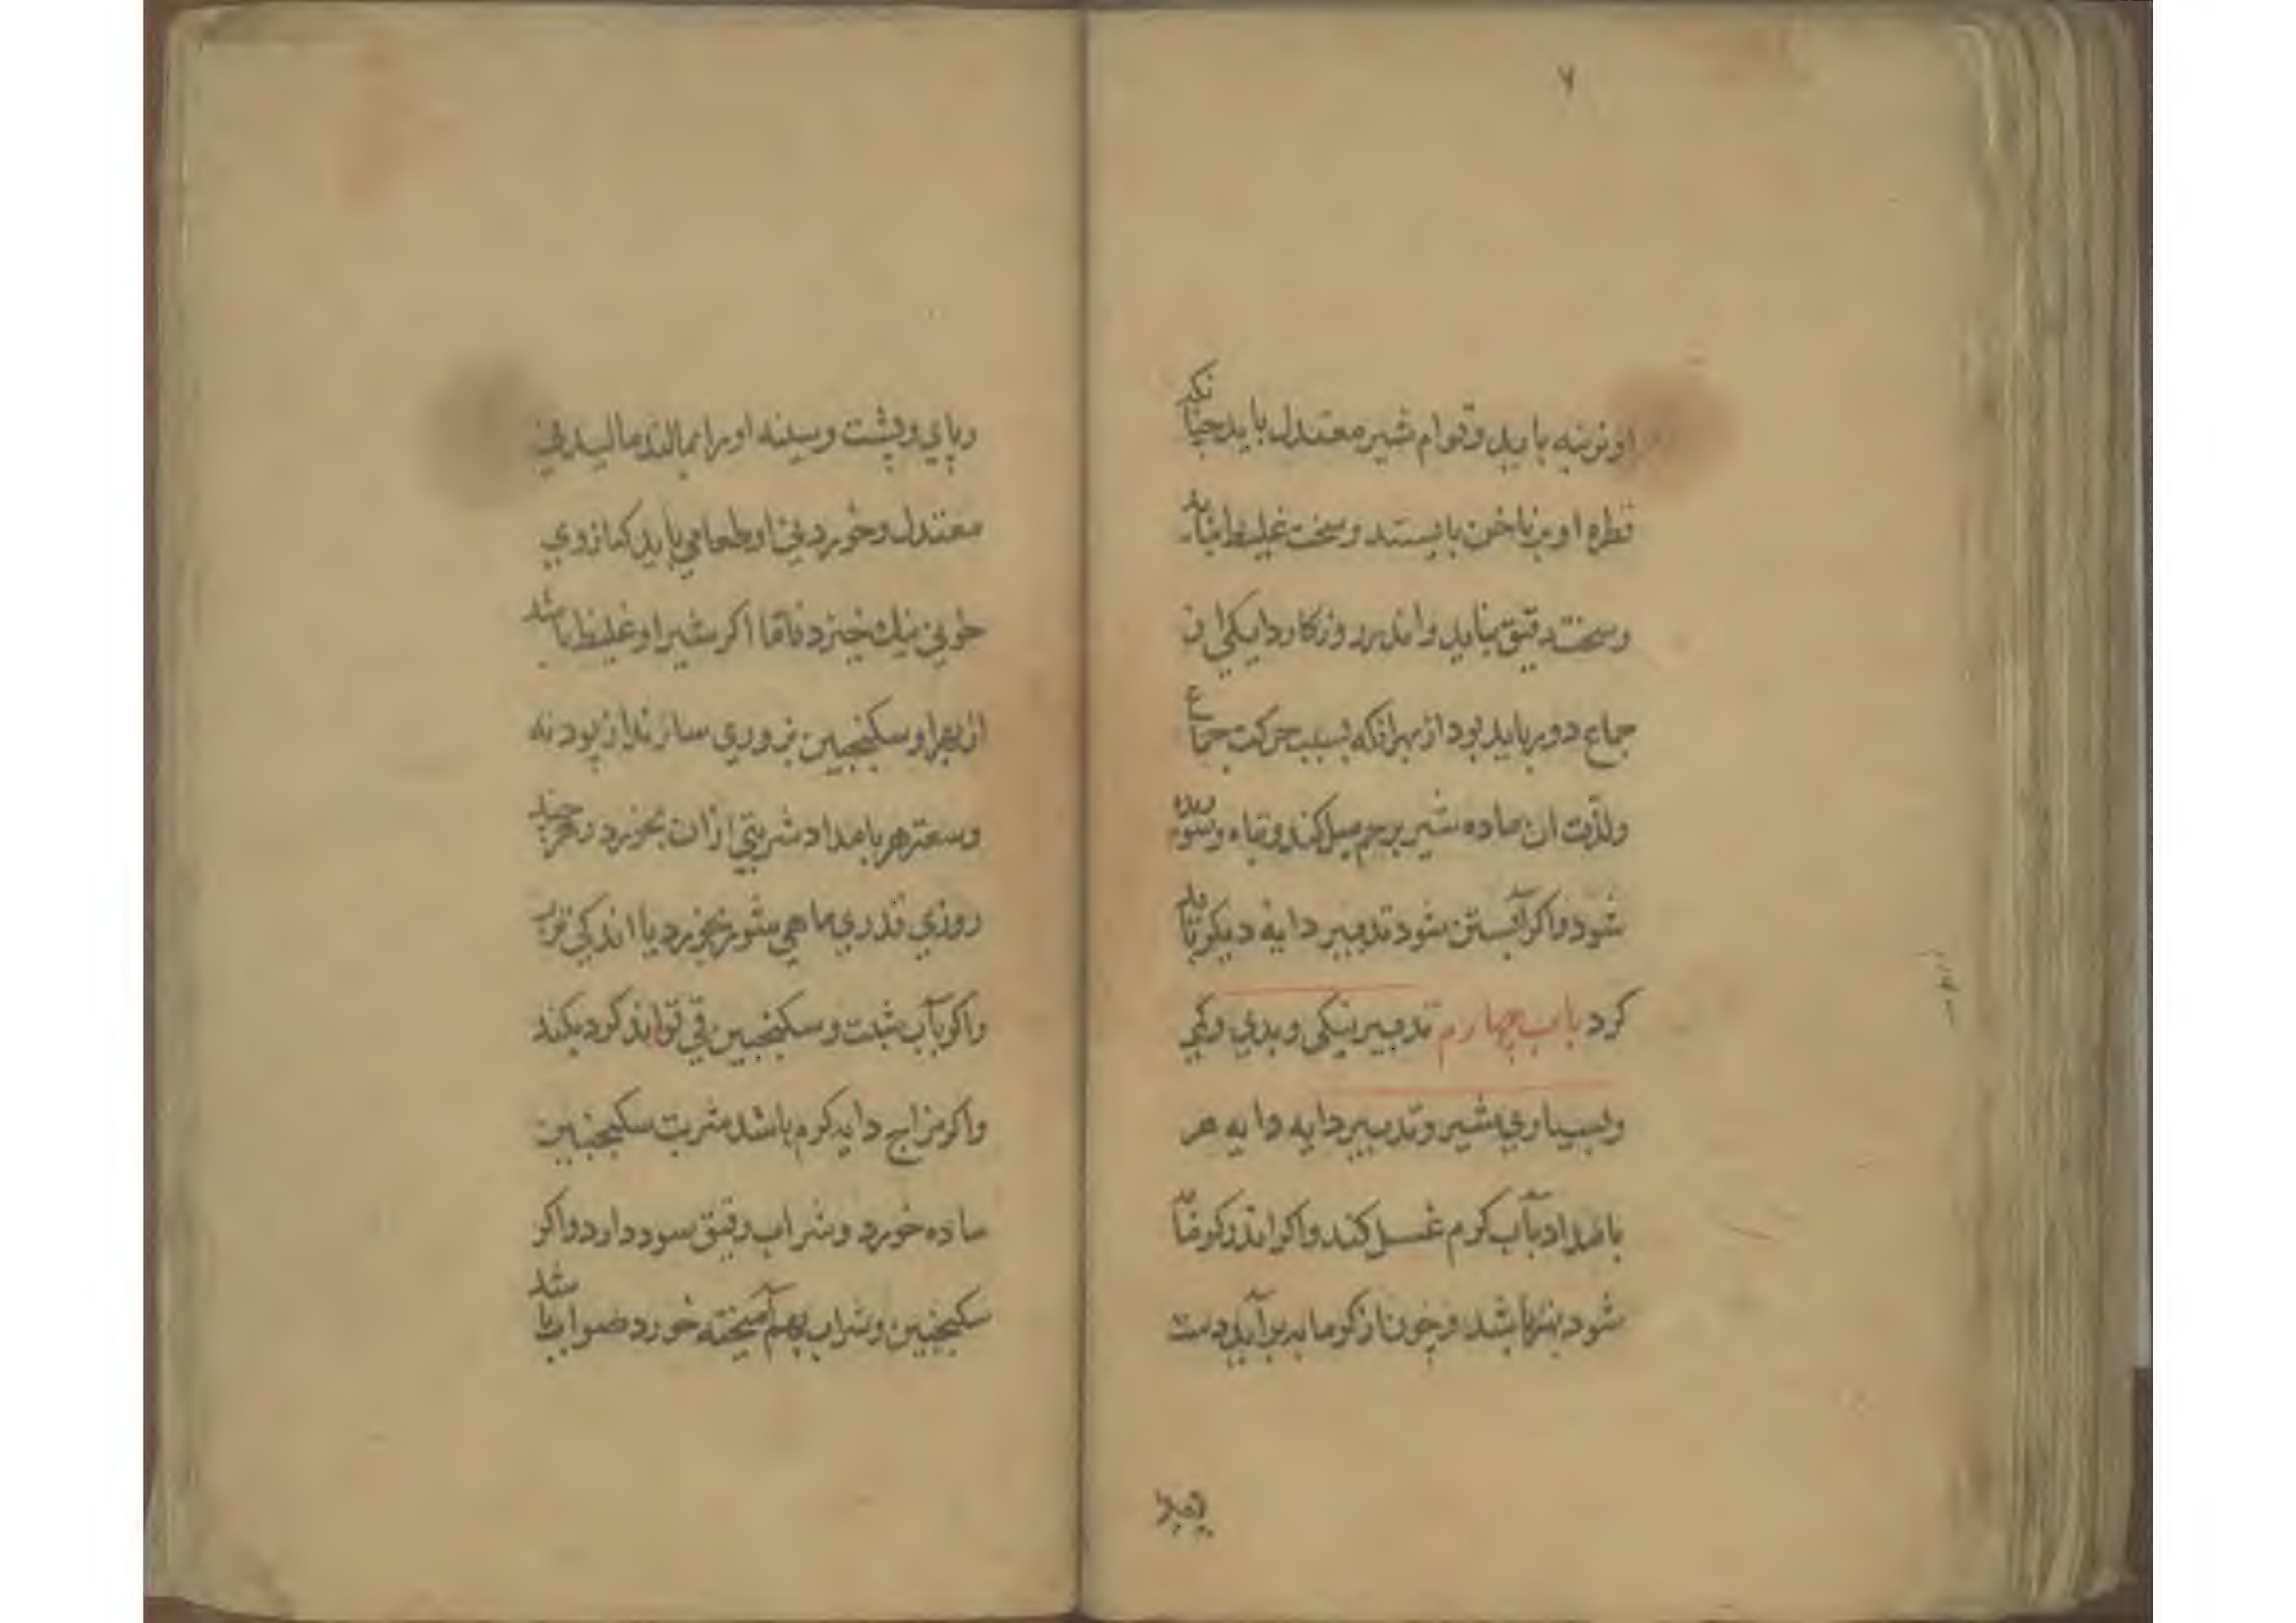 ۷
او نو نبه باید وقوام شیر معتدل باید چنانکه
قطره او بر ناخن بایستد و سخت غلیظ نباید
و سخت رقیق نباید واندر روزکار دایکی از
جماع دور باید بود از بهر انکه بسبب حرکت جماع
ولذت ان ماده شیر برحم میل کند و تباه و شوریده
شود واکر آبستن شود تدبیر دایه دیکر باید
کرد باب چهارم تدبیر نیکی و بدي وکمي
و بسیاري شیر و تدبیر دایه دایه هر
بامداد بآب کرم غسل کند واکر اندر کرمابه
شود بهتر باشد و چون از کرمابه برآید دست
وپاي وپشت وسینه او را بمالند مالیدني
معتدل وخوردني او طعامي باید که ازوي
خوني نیك خیزد فاما اکر شیر او غلیظ باشد
از بهر او سکنجبین بزوري سازند از پودنه
وسعتر هر بامداد شربتي ازان بخورد وهر چند
روزي قدري ماهي شور بخورد با اندکي ترب
واکر بآب شبت و سکنجبین قي تواند کرد بکند
واکر مزاج دایه کرم باشد شربت سکنجبین
ساده خورد و شراب رقیق سود دارد واکر
سکنجبین وشراب بهم آمیخته خورد صواب باشد